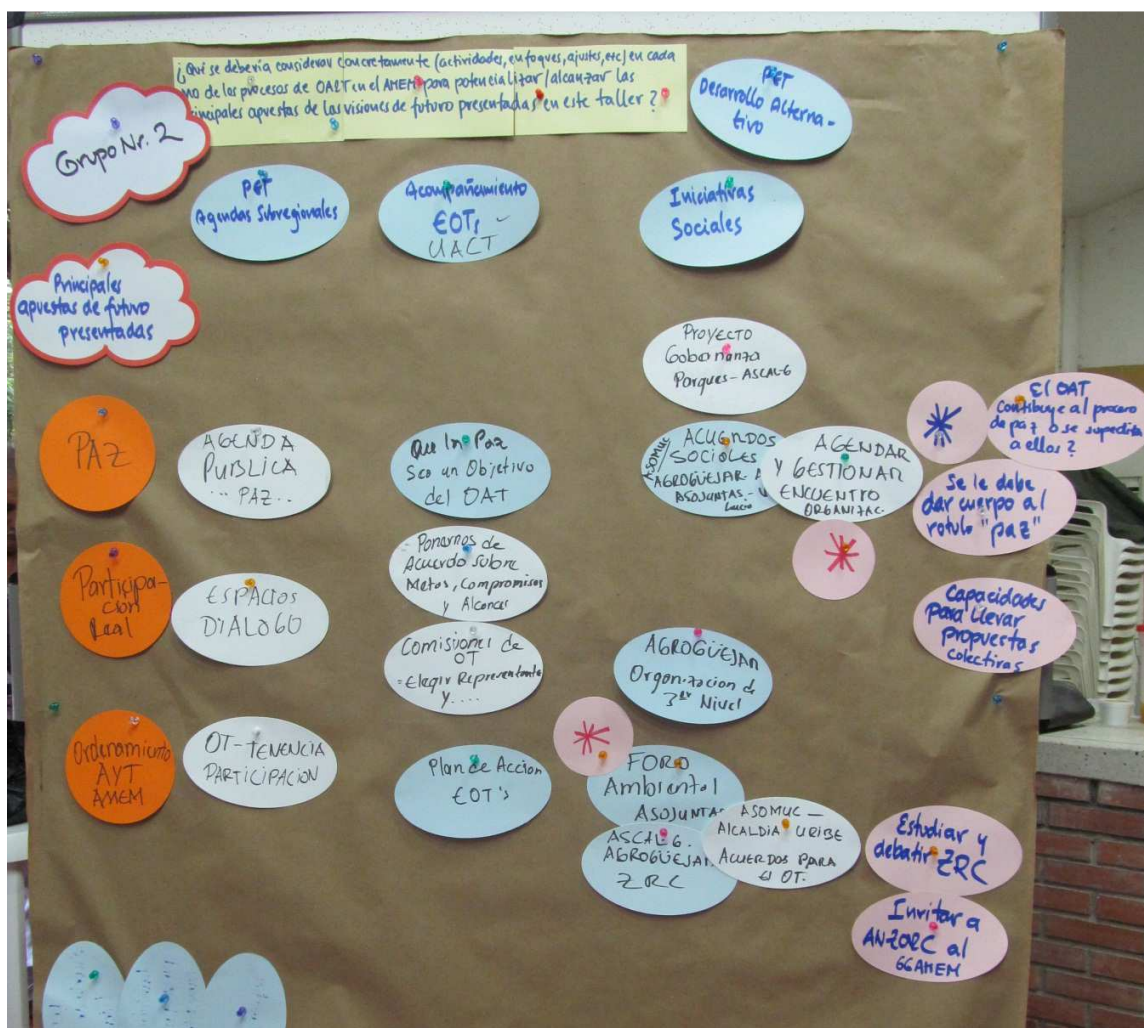 ¿Qué se debería considerar concretamente (actividades, enfoques, ajustes, etc) en cada
no de los procesos de OAET en el AMEM para potencializar/alcanzar las
incipales apuestas de las visiones de futuro presentadas en este taller?
PET
Desarrollo Alterna-
tivo
Grupo Nr. 2
PET
Agendas Subregionales
Acompañamiento
EOTs
UACT
Iniciativas
Sociales
Principales
apuestas de futuro
presentadas
Proyecto
Gobernanza
Parques - ASCAL-G
PAZ
AGENDA
PUBLICA
... PAZ ..
Que la Paz
Sea un Objetivo
del OAT
ASOMUC
ACUERDOS
SOCIALES
AGROGÜEJAR
ASOJUNTAS -
AGENDAR
Y GESTIONAR
ENCUENTRO
ORGANIZAC.
El OAT
Contribuye al proceso
de paz o se supedita
a ellos?
Se le debe
dar cuerpo al
rotulo "paz"
Participa-
ción
Real
ESPACIOS
DIALOGO
Ponernos de
Acuerdo sobre
Metas, Compromisos
y Alcances
Comisiones de
OT
= Elegir Representante
y ....
AGROGÜEJAR
Organizacion de
3er Nivel
Capacidades
para llevar
propuestas
colectivas
Ordenamiento
AYT
AMEM
OT-TENENCIA
PARTICIPACION
Plan de Accion
EOT's
FORO
Ambiental
ASOJUNTAS
ASCAL-G.
AGROGÜEJAR
ZRC
ASOMUC -
ALCALDIA URIBE
ACUERDOS PARA
El OT.
Estudiar y
debatir
ZRC
Invitar a
ANZORC al
GGAMEM